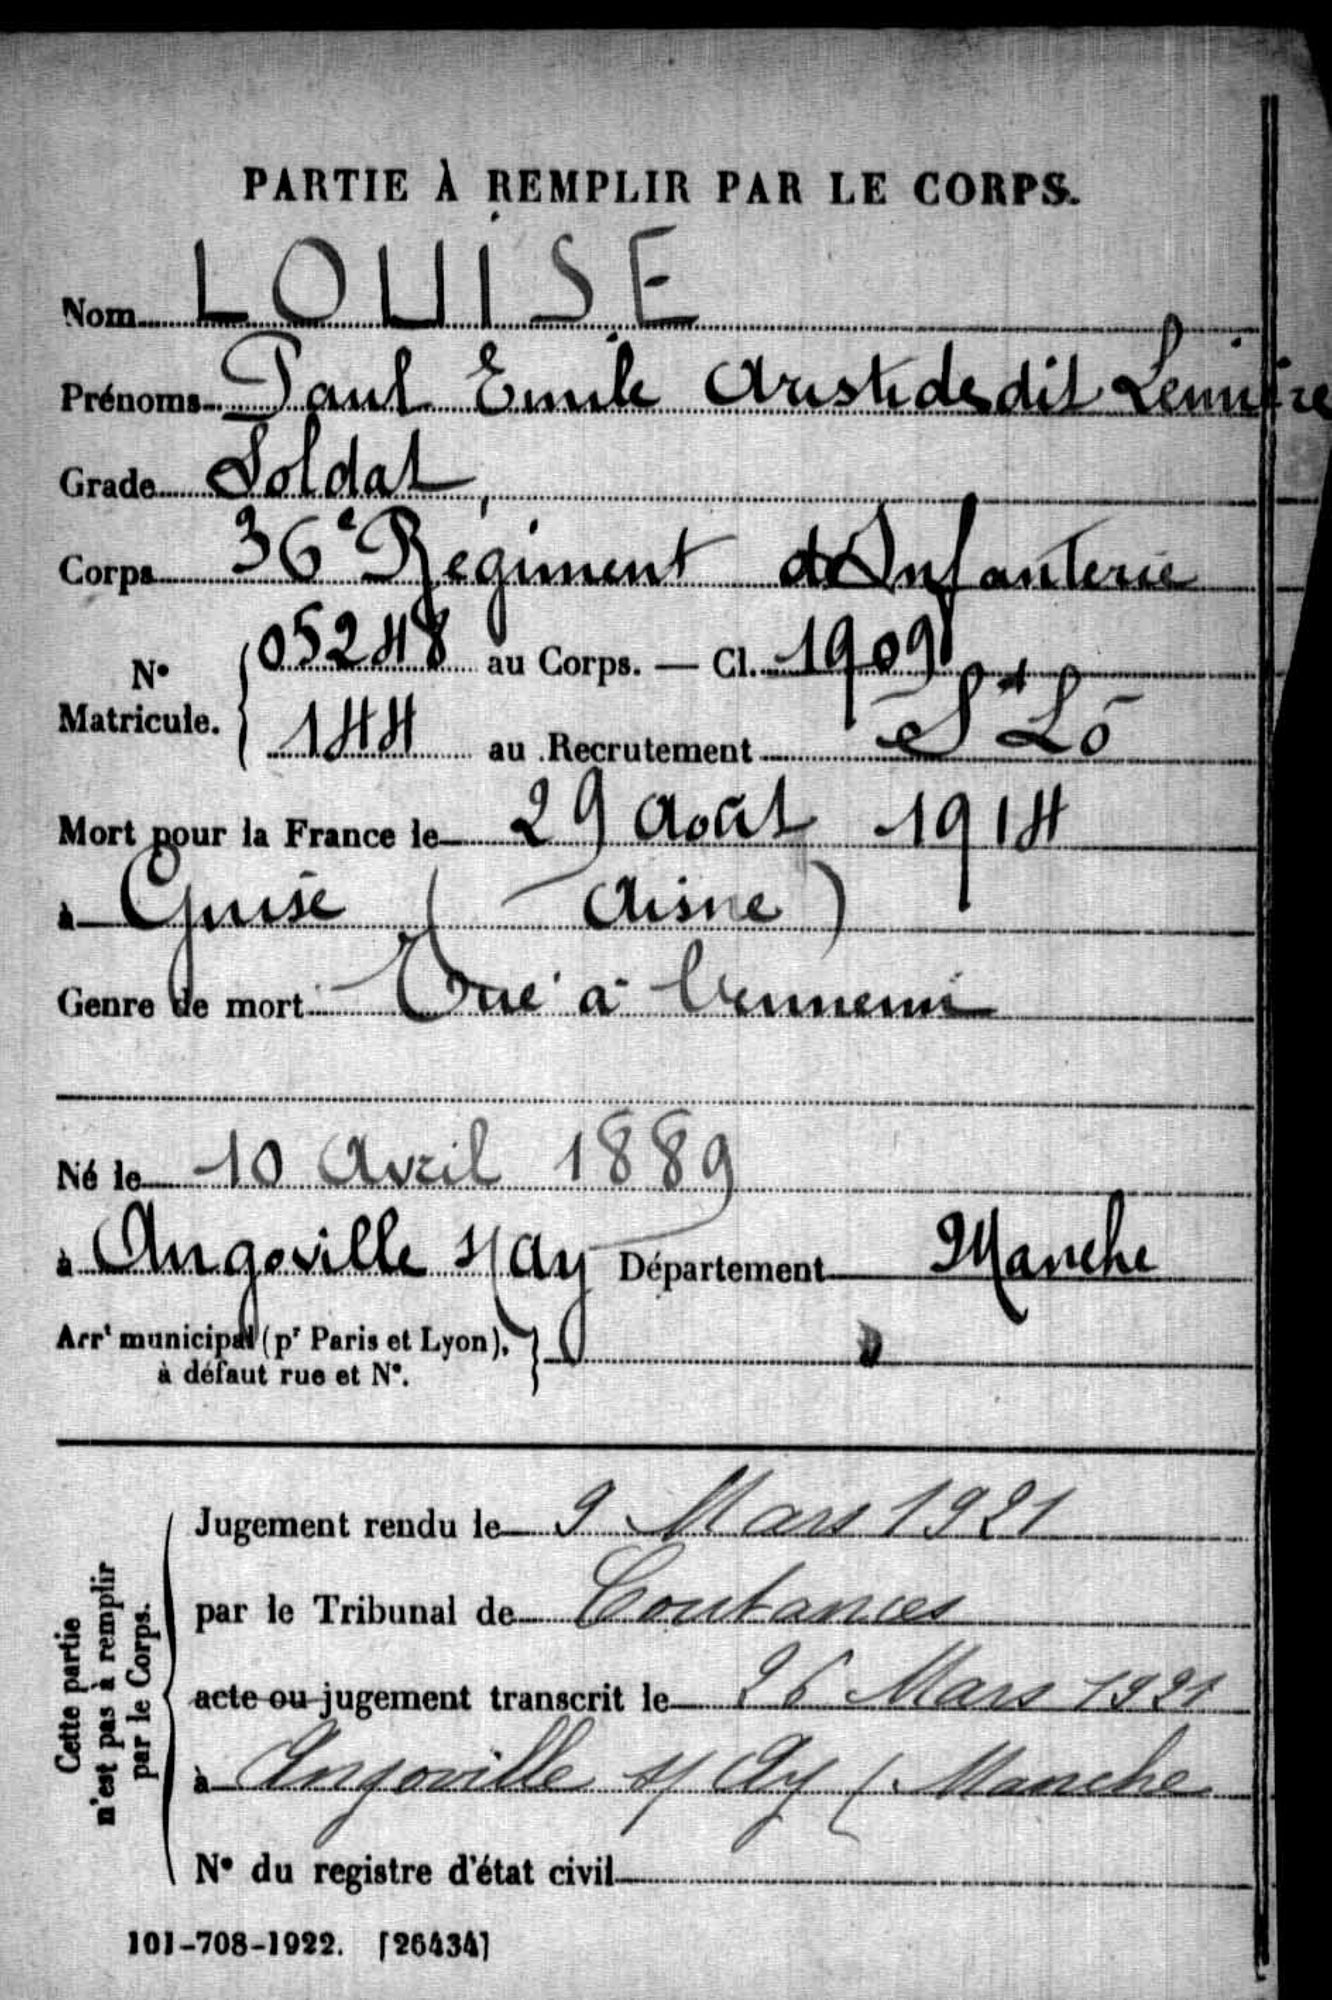 PARTIE À REMPLIR PAR LE CORPS.
Nom LOUISE
Prénoms Paul Emile Aristide dit Lemière
Grade Soldat
Corps 36e Régiment d'Infanterie
N° Matricule. { 05248 au Corps. — Cl. 1909
144 au Recrutement St Lô
Mort pour la France le 29 Août 1914
à Guise (Aisne)
Genre de mort Tué à l'ennemi
Né le 10 Avril 1889
à Angoville s/ Ay Département Manche
Arrt municipal (pr Paris et Lyon), à défaut rue et N°. }
Cette partie n'est pas à remplir par le Corps.
Jugement rendu le 9 Mars 1921
par le Tribunal de Coutances
acte ou jugement transcrit le 26 Mars 1921
à Angoville s/ Ay (Manche
N° du registre d'état civil
101-708-1922. [26434]